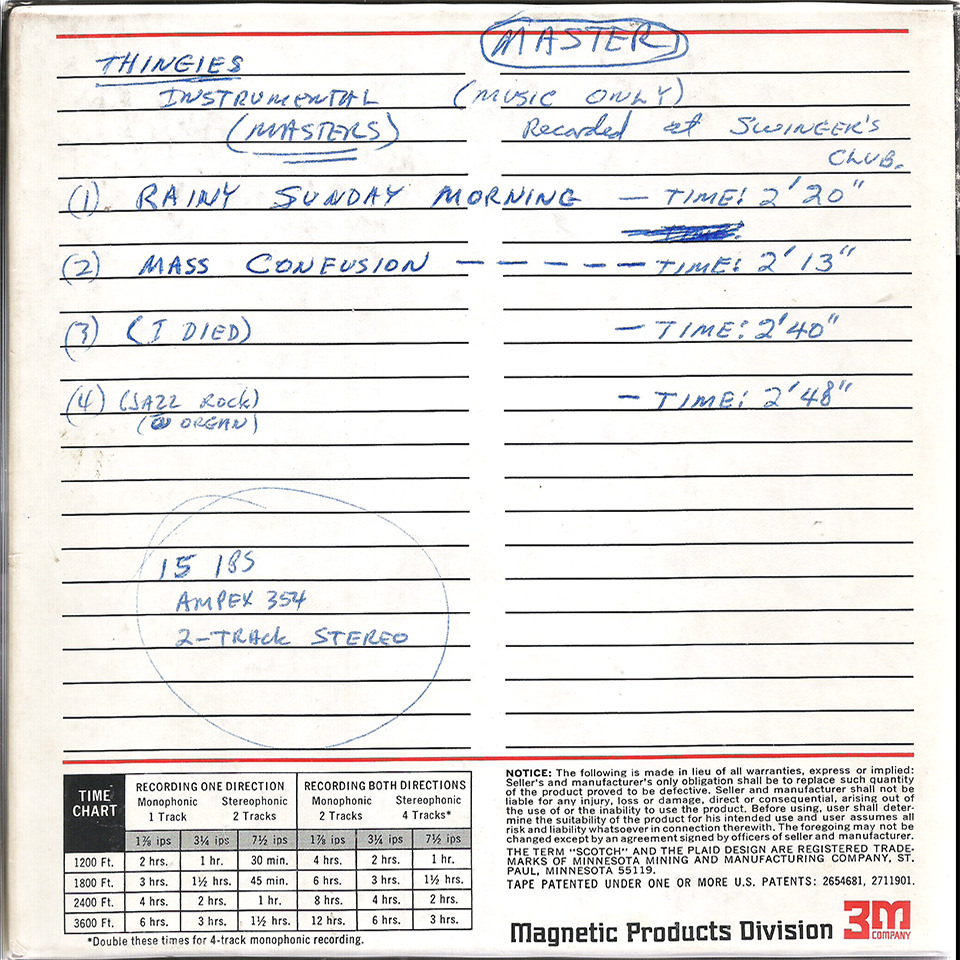 MASTER
THINGIES
INSTRUMENTAL (MUSIC ONLY)
(MASTERS) Recorded at SWINGER'S
CLUB.
(1) RAINY SUNDAY MORNING — TIME: 2' 20"
(2) MASS CONFUSION — — — — — TIME: 2' 13"
(3) (I DIED) — TIME: 2' 40"
(4) (JAZZ ROCK) — TIME: 2' 48"
ORGAN)
15 IPS
AMPEX 354
2-TRACK STEREO
TIME CHART
RECORDING ONE DIRECTION RECORDING BOTH DIRECTIONS
Monophonic Stereophonic Monophonic Stereophonic
1 Track 2 Tracks 2 Tracks 4 Tracks*
1⅞ ips 3¾ ips 7½ ips 1⅞ ips 3¾ ips 7½ ips
1200 Ft. 2 hrs. 1 hr. 30 min. 4 hrs. 2 hrs. 1 hr.
1800 Ft. 3 hrs. 1½ hrs. 45 min. 6 hrs. 3 hrs. 1½ hrs.
2400 Ft. 4 hrs. 2 hrs. 1 hr. 8 hrs. 4 hrs. 2 hrs.
3600 Ft. 6 hrs. 3 hrs. 1½ hrs. 12 hrs. 6 hrs. 3 hrs.
*Double these times for 4-track monophonic recording.
NOTICE: The following is made in lieu of all warranties, express or implied:
Seller's and manufacturer's only obligation shall be to replace such quantity
of the product proved to be defective. Seller and manufacturer shall not be
liable for any injury, loss or damage, direct or consequential, arising out of
the use of or the inability to use the product. Before using, user shall deter-
mine the suitability of the product for his intended use and user assumes all
risk and liability whatsoever in connection therewith. The foregoing may not be
changed except by an agreement signed by officers of seller and manufacturer.
THE TERM "SCOTCH" AND THE PLAID DESIGN ARE REGISTERED TRADE-
MARKS OF MINNESOTA MINING AND MANUFACTURING COMPANY, ST.
PAUL, MINNESOTA 55119.
TAPE PATENTED UNDER ONE OR MORE U.S. PATENTS: 2654681, 2711901.
Magnetic Products Division 3M COMPANY